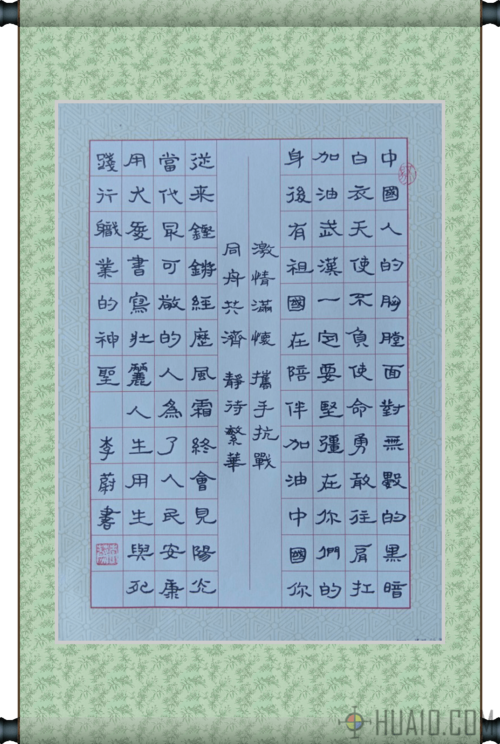 中國人的胸膛面對無數的黑暗
白衣天使不負使命勇敢往肩扛
加油武漢一定要堅彊在你們的
身後有祖國在陪伴加油中國你
激情滿懷 攜手抗戰
同舟共濟 靜待繁華
從来鏗鏘經歷風霜終會見陽光
當代最可敬的人為了人民安康
用大愛書寫壯麗人生用生與死
踐行職業的神聖 李蔚書
HUA10.COM